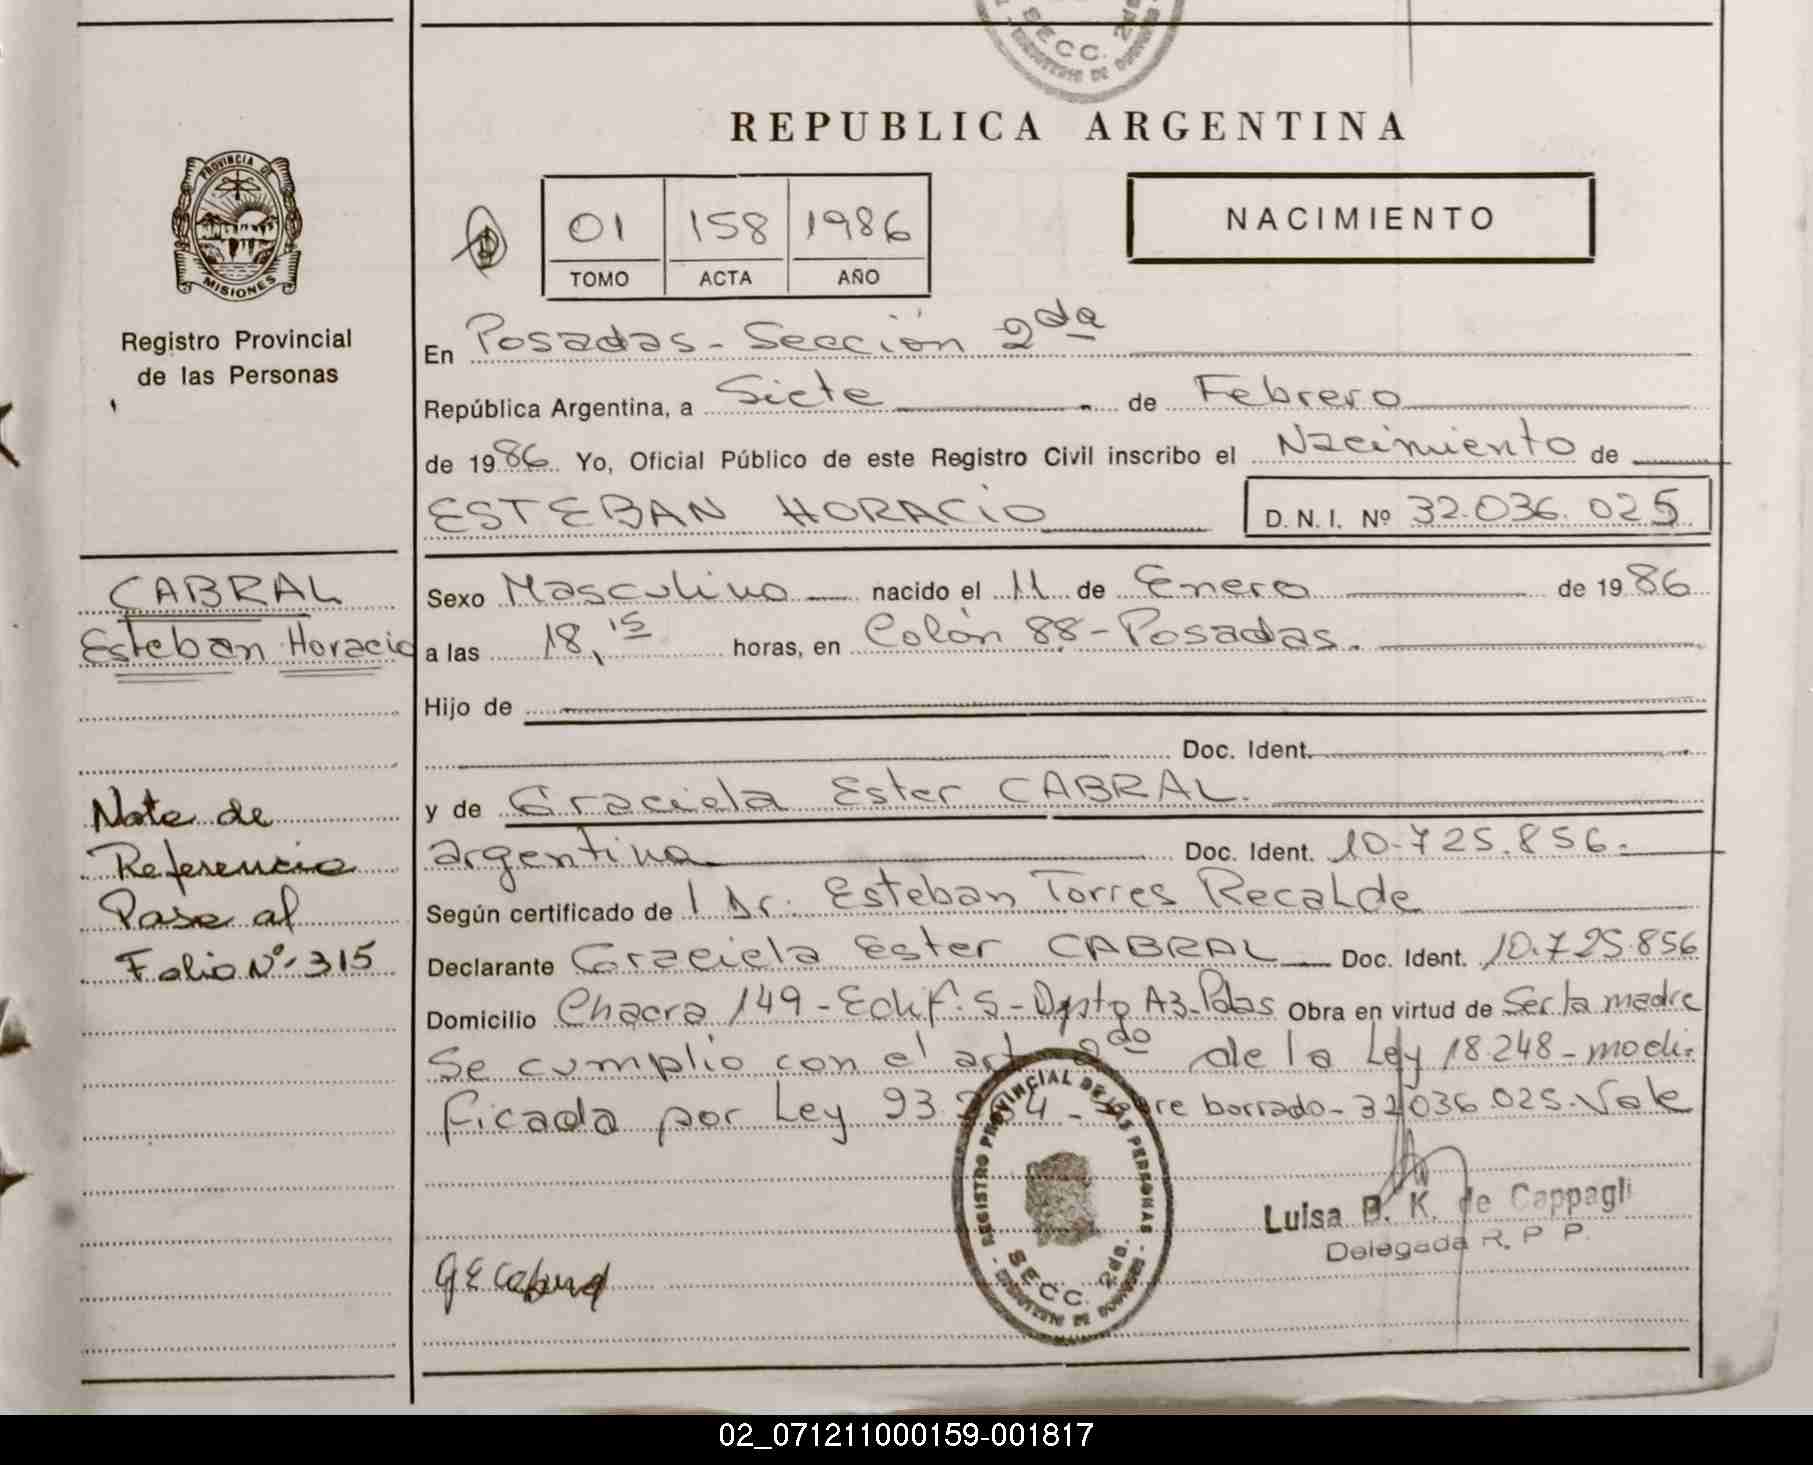 SECC. 2da.
REPUBLICA ARGENTINA
PROVINCIA DE MISIONES
01 158 1986
TOMO ACTA AÑO
NACIMIENTO
Registro Provincial
de las Personas
En Posadas - Sección 2da
República Argentina, a Siete de Febrero
de 1986 Yo, Oficial Público de este Registro Civil inscribo el Nacimiento de
ESTEBAN HORACIO D.N.I. Nº 32.036.025
CABRAL
Esteban Horacio
Sexo Masculino nacido el 11 de Enero de 1986
a las 18,15 horas, en Colón 88 - Posadas.
Hijo de
Doc. Ident.
y de Graciela Ester CABRAL.
argentina Doc. Ident. 10.725.856.
Según certificado del Dr. Esteban Torres Recalde
Declarante Graciela Ester CABRAL Doc. Ident. 10.725.856
Domicilio Chacra 149 - Edif. 5 - Dpto A3 - Pdas Obra en virtud de Ser la madre
Se cumplio con el art 2do de la Ley 18.248 - modi-
ficada por Ley - Sobre borrado - 32.036.025 - Vale
Nota de
Referencia
Pase al
Folio Nº 315
REGISTRO PROVINCIAL DE LAS PERSONAS
SECC. 2da.
Luisa B. K. de Cappagli
Delegada R. P. P.
G E Cabral
02_071211000159-001817